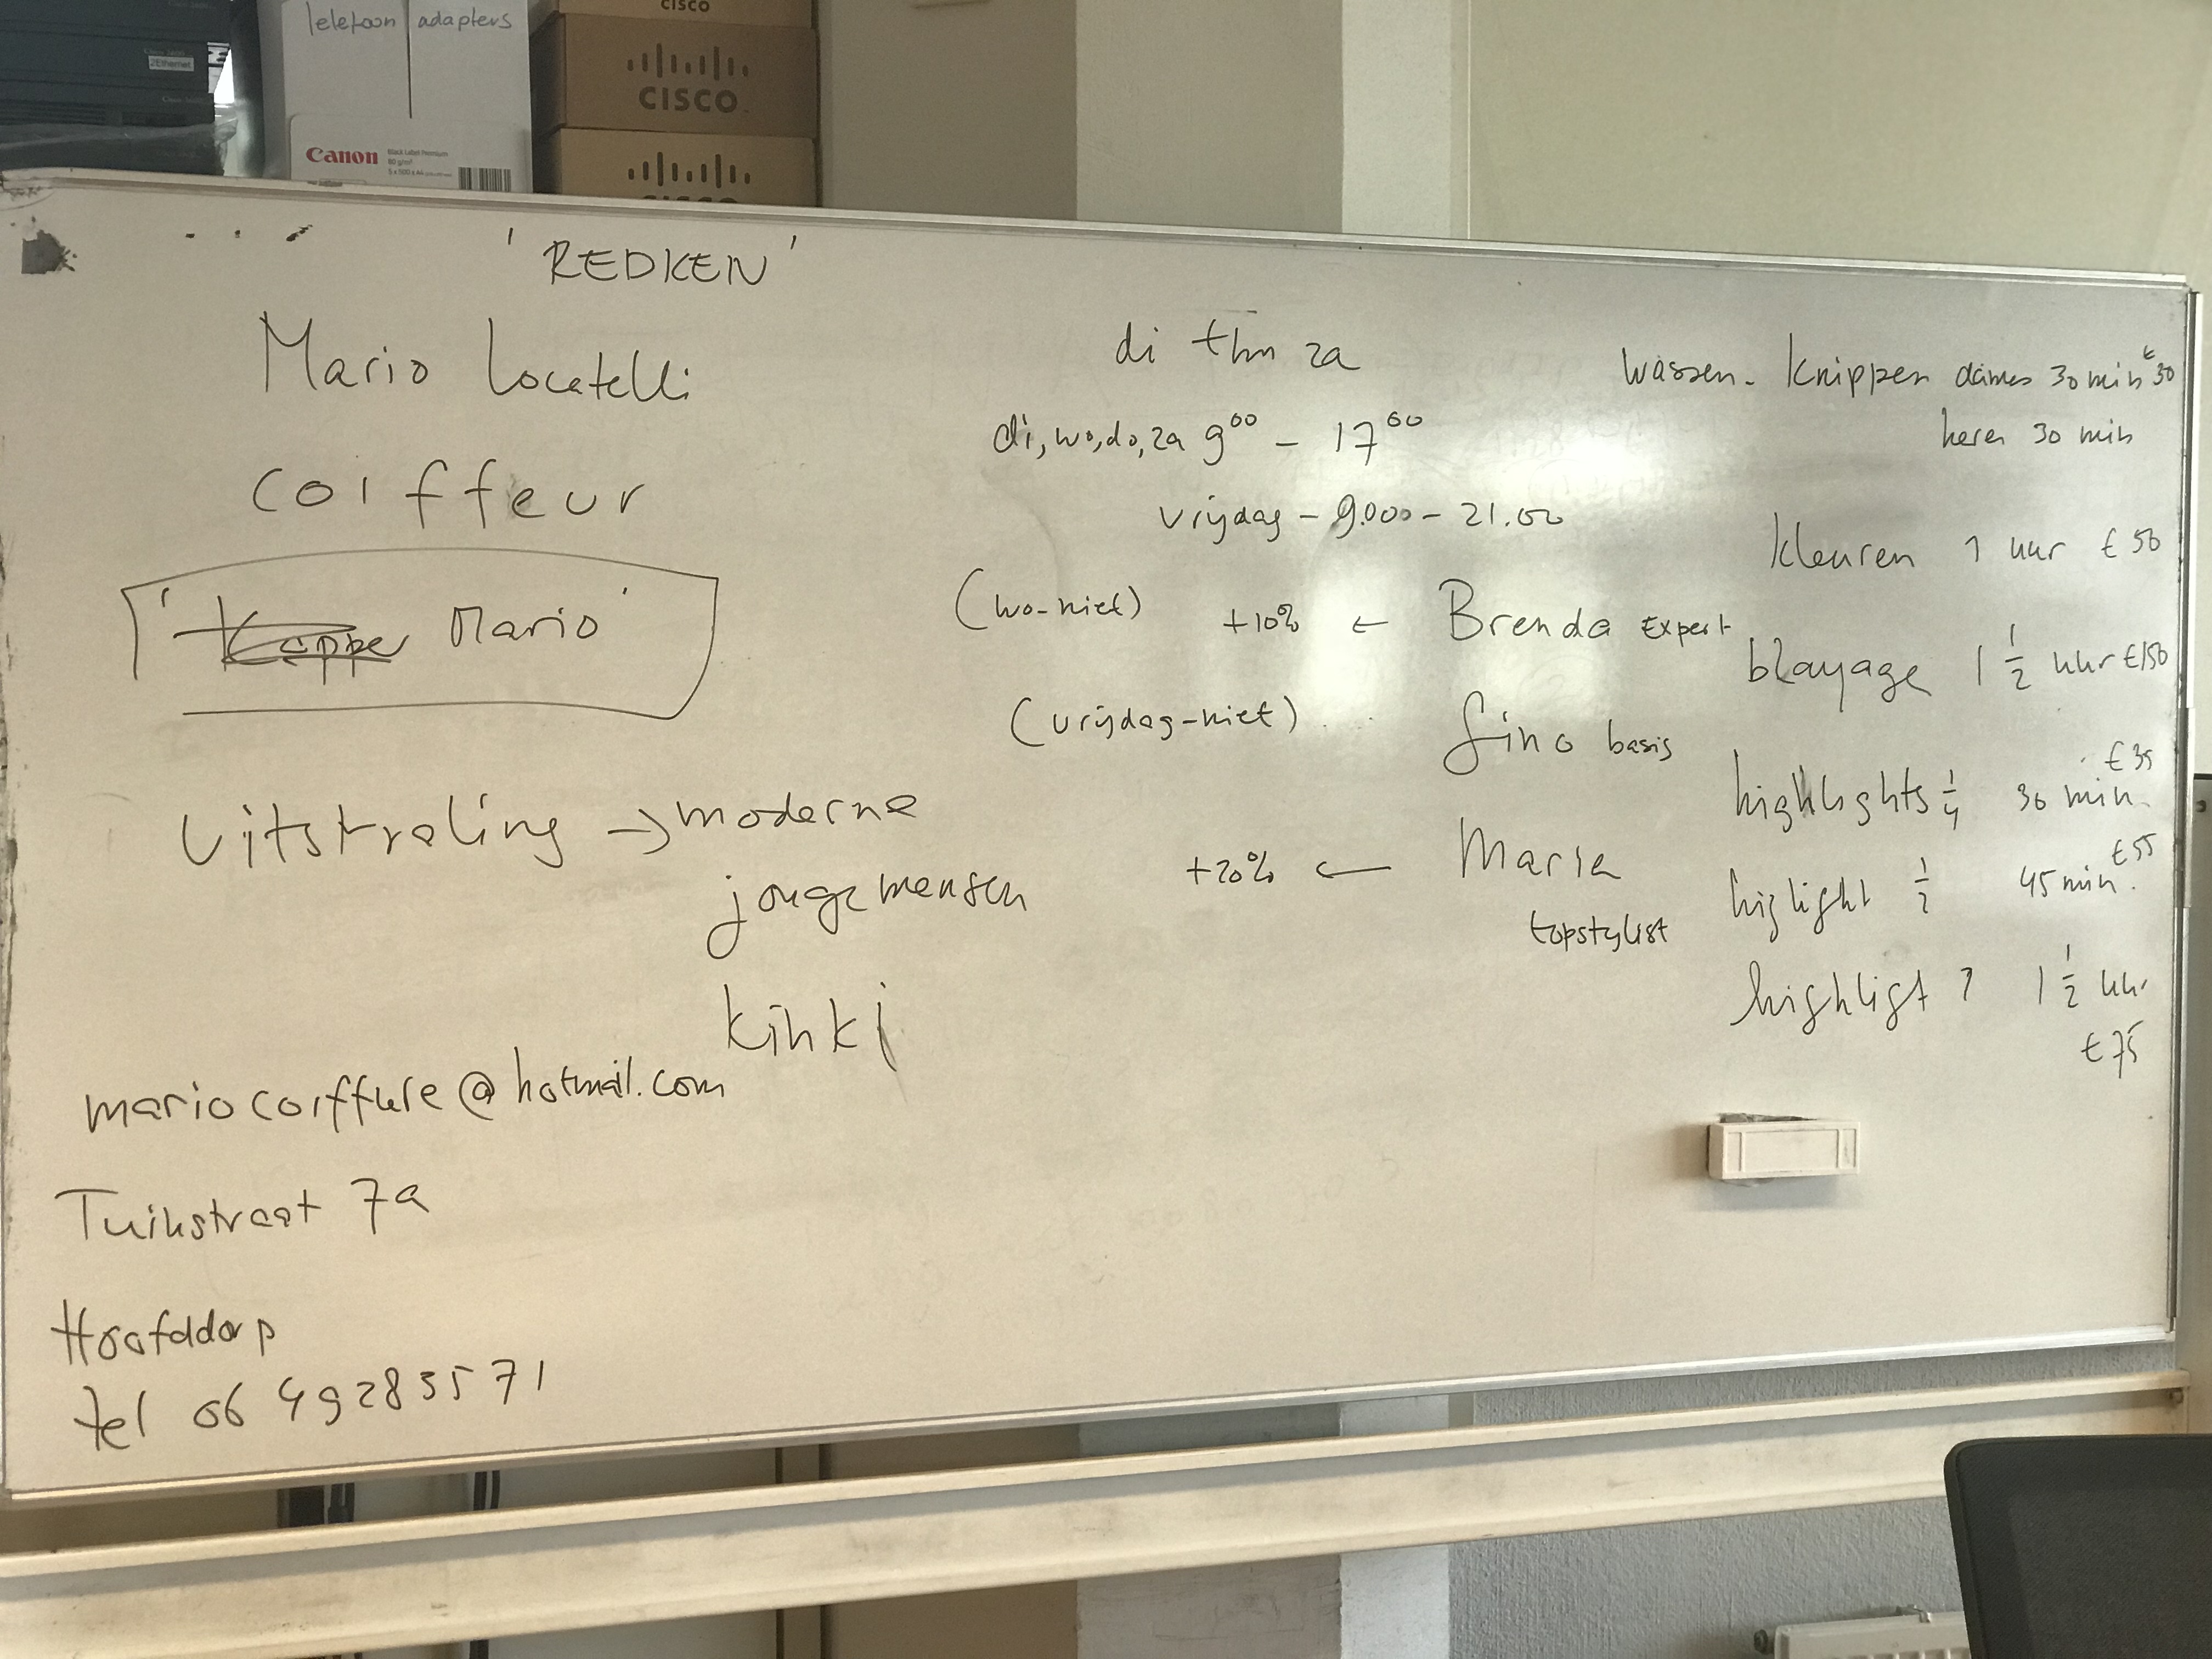 Telefoon adapters
2Ethernet
CISCO
CISCO
CISCO
Canon
Black Label Premium
80 g/m²
'REDKEN'
Mario Locatelli
coiffeur
'Kapper Mario'
Uitstraling → moderne
jonge mensen
kinki
mariocoiffure@hotmail.com
Tuinstraat 7a
Hoofddorp
tel 06 49283571
di thm za
di, wo, do, za 9⁰⁰ - 17⁰⁰
vrijdag - 9.000 - 21.00
(wo-niet) +10% ← Brenda Expert
(vrijdag-niet) Gino basis
+20% ← Maria
topstylist
Wassen. Knippen dames 30 min €30
heren 30 min
kleuren 1 uur € 50
blayage 1 1/2 uur €150
highlights 1/4 30 min. €35
higlight 1/2 45 min. €55
highligt 1 1/2 uur
€ 75